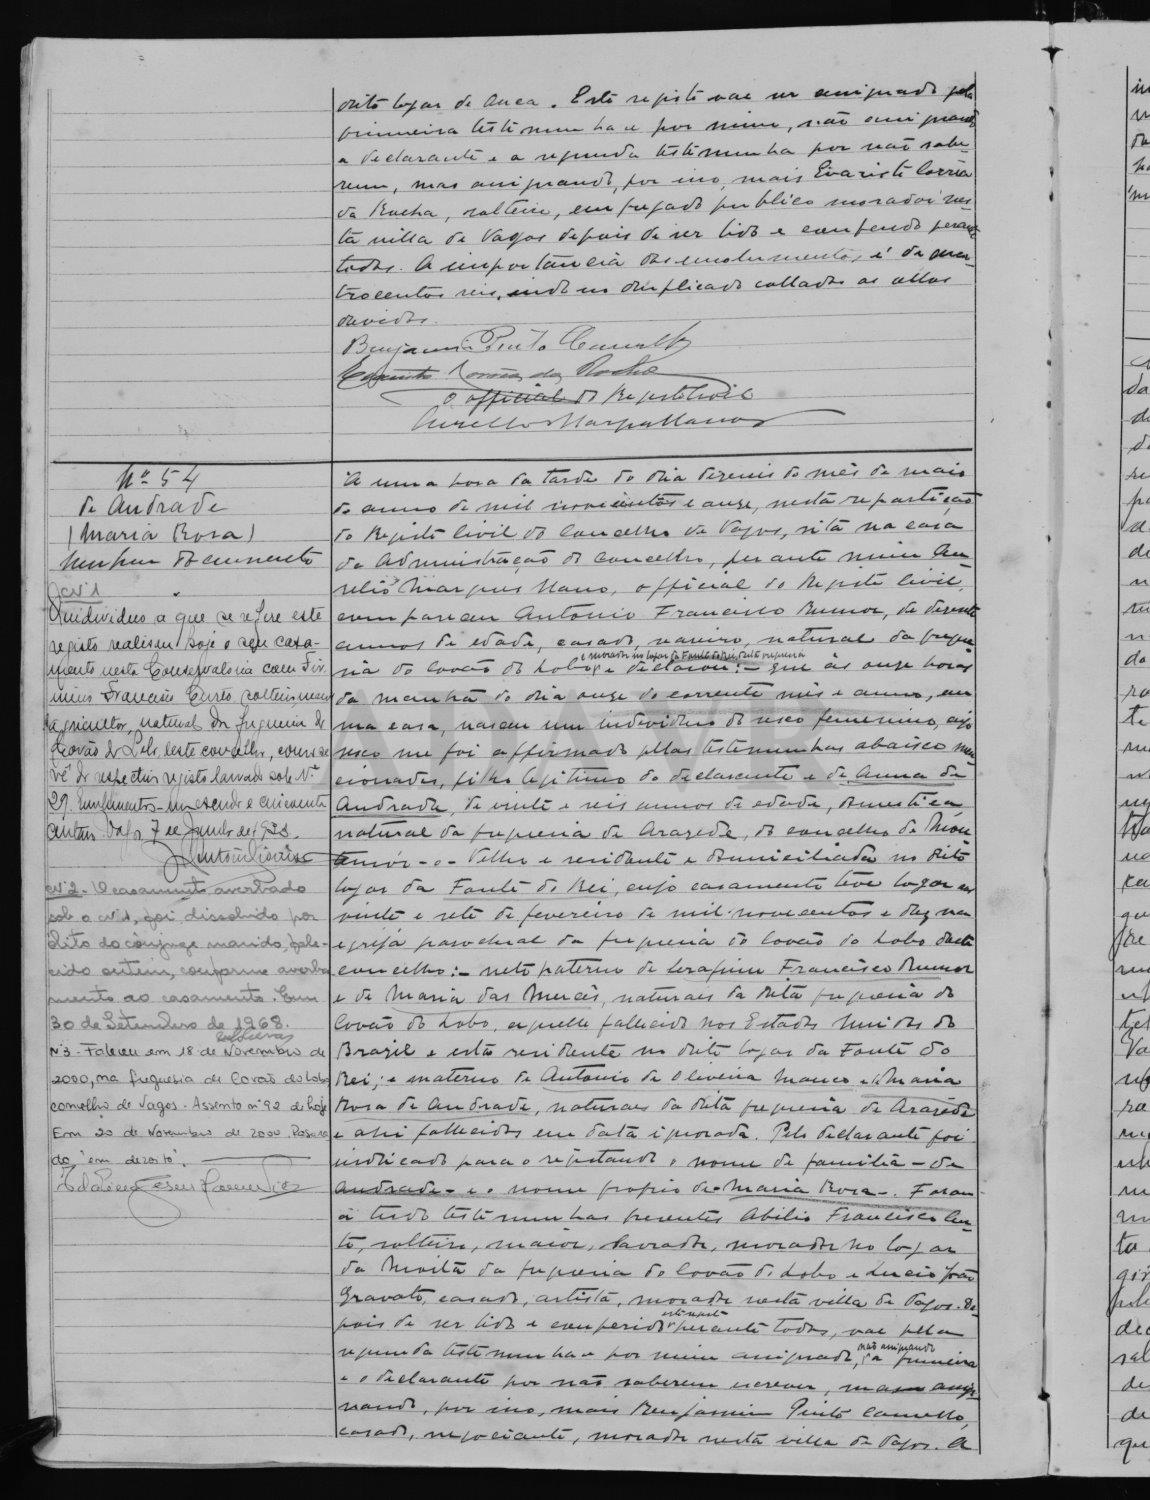 dito logar de Ouca. Este registo vae ser assignado pela
primeira testemunha e por mim, não assignando
a declarante e a segunda testemunha por não sabe-
rem, mas assignando, por isso, mais Evaristo Corrêa
da Rocha, solteiro, empregado publico morador nes-
ta villa de Vagos depois de ser lido e conferido perante
todos. A importancia dos emolumentos é de qua-
trocentos reis, indo no duplicado collados os sellos
devidos.
Benjamin Pinto Camello
Evaristo Corrêa da Rocha
O official do Registo Civil
Aurelio Marques Mano
Nº 54
de Andrade
(Maria Rosa)
Nenhum documento
Nº 1
O individuo a que se refere este
registo realisou hoje o seu casa-
mento nesta Conservatoria com
Francisco Curto, solteiro, maior
agricultor, natural da freguesia de
Covão do Lobo, deste concelho, como se
vê do respectivo registo lavrado sob Nº
29. Emolumentos
Vagos, 7 de Junho de
Nº 2 - O casamento averbado
sob o nº 1, foi dissolvido por
óbito do cônjuge marido, fale-
cido ontem, conforme averba-
mento ao casamento. Em
30 de Setembro de 1968.
Nº 3 - Faleceu em 18 de Novembro de
2000, na freguesia de Covão do Lobo
concelho de Vagos. Assento nº 92 de hoje
Em 20 de Novembro de 2000. Rasura-
do "em dezoito".
Á uma hora da tarde do dia dezeseis do mês de maio
do anno de mil novecentos e onze, nesta repartição
do Registo Civil do Concelho de Vagos, sita na casa
da Administração do Concelho, perante mim Au-
relio Marques Mano, official do Registo Civil,
compareceu Antonio Francisco Rumor, de dezenove
annos de edade, casado, natural da fregue-
sia do Covão do Lobo, e morador no logar da Fonte do Rei, dita freguesia e declarou: - que ás onze horas
da manhã do dia onze do corrente mês e anno, em
sua casa, nasceu um individuo do sexo femenino, cujo
sexo me foi affirmado pellas testemunhas abaixo men-
cionadas, filho legitimo do declarante e de Anna de
Andrade, de vinte e seis annos de edade, domestica
natural da freguesia de Arazede, do concelho de Mon-
temór-o-Velho e residente e domiciliada no dito
logar da Fonte do Rei, cujo casamento teve logar em
vinte e sete de fevereiro de mil novecentos e dez na
egreja parochial da freguesia do Covão do Lobo deste
concelho: - neto paterno de Serafim Francisco Rumor
e de Maria das Mercês, naturais da dita freguesia do
Covão do Lobo, aquelle fallecido nos Estados Unidos do
Brazil e esta residente no dito logar da Fonte do
Rei; e materno de Antonio de Oliveira Manco e de Maria
Rosa de Andrade, naturaes da dita freguesia de Arazede
e ahi fallecidos em data ignorada. Pelo declarante foi
indicado para o registando o nome de familia - de
Andrade - e o nome proprio de - Maria Rosa -. Foram
a tudo testemunhas presentes Abilio Francisco Cur-
to, solteiro, maior, lavrador, morador no logar
da Moita da freguesia do Covão do Lobo e Lucio João
Gravato, casado, artista, morador nesta villa de Vagos. De-
pois de ser lido e conferido este registo perante todos, vae pella
segunda testemunha e por mim assignado, não assignando a primeira
e o declarante por não saberem escrever, mas assig-
nando, por isso, mais Benjamin Pinto Camello,
casado, negociante, morador nesta villa de Vagos. A